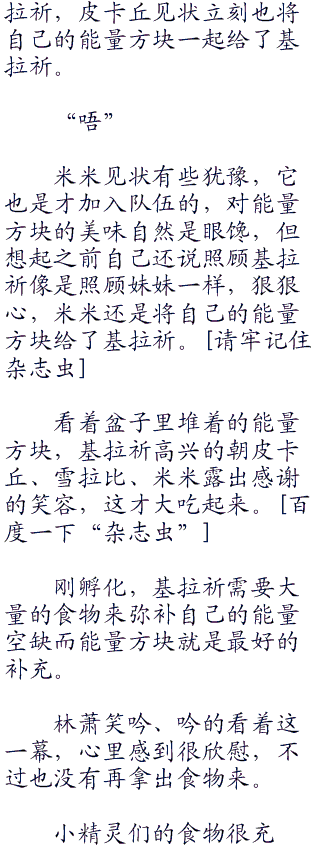 拉祈，皮卡丘见状立刻也将
自己的能量方块一起给了基
拉祈。
“唔”
米米见状有些犹豫，它
也是才加入队伍的，对能量
方块的美味自然是眼馋，但
想起之前自己还说照顾基拉
祈像是照顾妹妹一样，狠狠
心，米米还是将自己的能量
方块给了基拉祈。[请牢记住
杂志虫]
看着盆子里堆着的能量
方块，基拉祈高兴的朝皮卡
丘、雪拉比、米米露出感谢
的笑容，这才大吃起来。[百
度一下“杂志虫”]
刚孵化，基拉祈需要大
量的食物来弥补自己的能量
空缺而能量方块就是最好的
补充。
林萧笑吟、吟的看着这
一幕，心里感到很欣慰，不
过也没有再拿出食物来。
小精灵们的食物很充